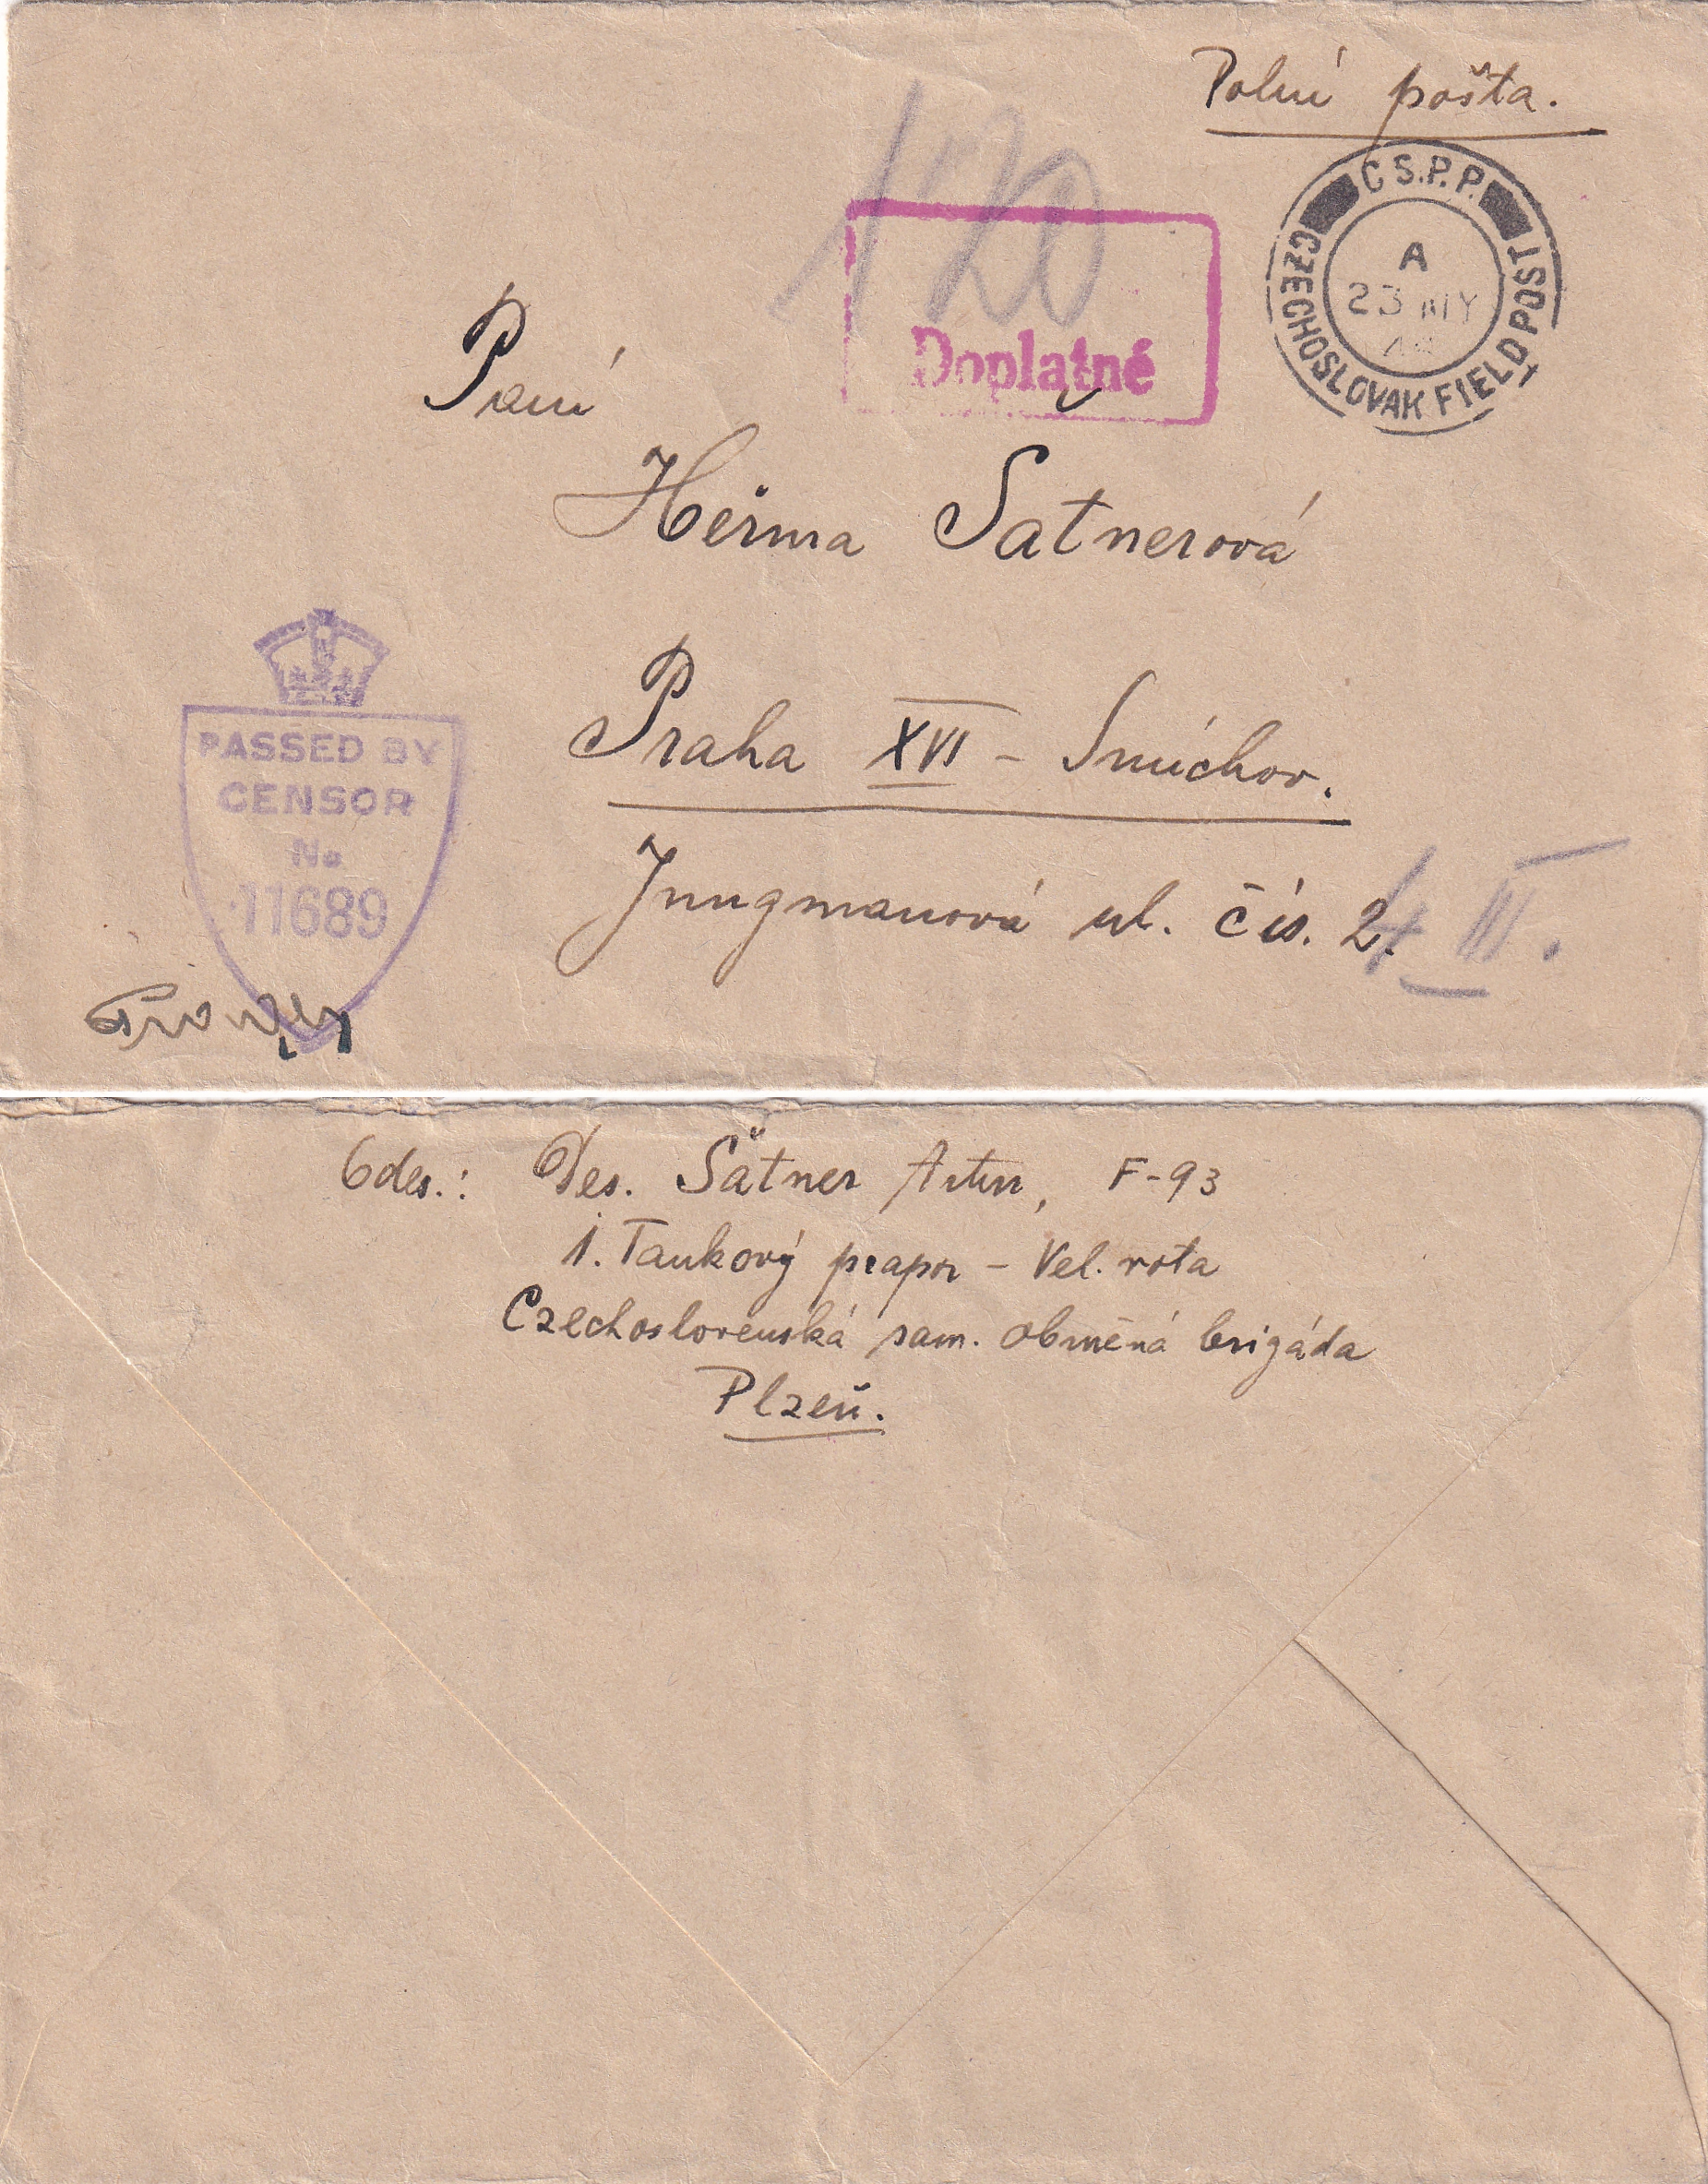 Polní pošta.
1'20
Doplatné
C S.P.P.
CZECHOSLOVAK FIELD POST
A
23 MY
Paní
Heřma Satnerová
Praha XVI - Smíchov.
Jungmanová ul. čís. 2.
III.
PASSED BY
CENSOR
No
11689
Odes.: Des. Šatner Artur, F-93
1. Tankový prapor - Vel. rota
Czechoslovenská sam. obrněná brigáda
Plzeň.